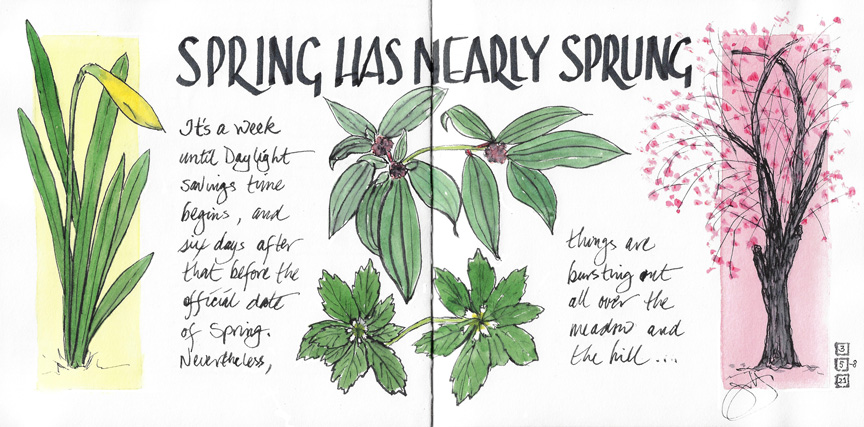 SPRING HAS NEARLY SPRUNG
It's a week
until Daylight
savings time
begins, and
six days after
that before the
official date
of Spring.
Nevertheless,
things are
bursting out
all over the
meadow and
the hill...
3
5
21